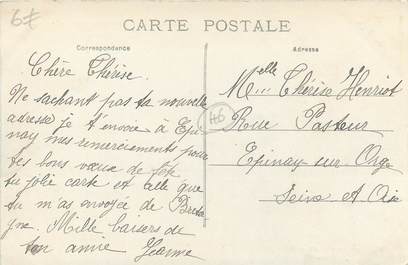 6€
CARTE POSTALE
Correspondance
Adresse
Chère Thérèse.
Ne sachant pas ta nouvelle
adresse je t'envoie à Epi
nay mes remerciements pour
tes bons vœux de fête
ta jolie carte et celle que
tu m'as envoyée de Breta
gne. Mille baisers de
ton amie Jeanne
Melle Thérèse Henriot
46
Rue Pasteur
Epinay sur Orge
Seine et Oise